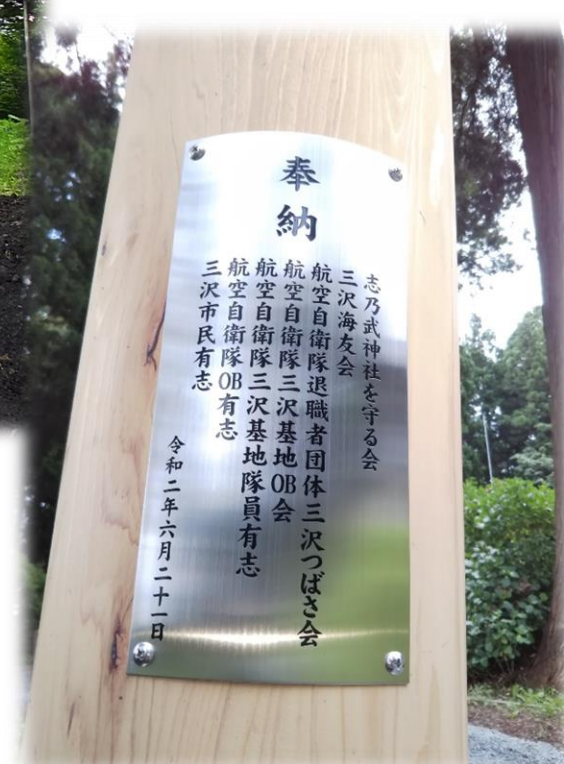 奉納
志乃武神社を守る会
三沢海友会
航空自衛隊退職者団体三沢つばさ会
航空自衛隊三沢基地OB会
航空自衛隊三沢基地隊員有志
航空自衛隊OB有志
三沢市民有志
令和二年六月二十一日